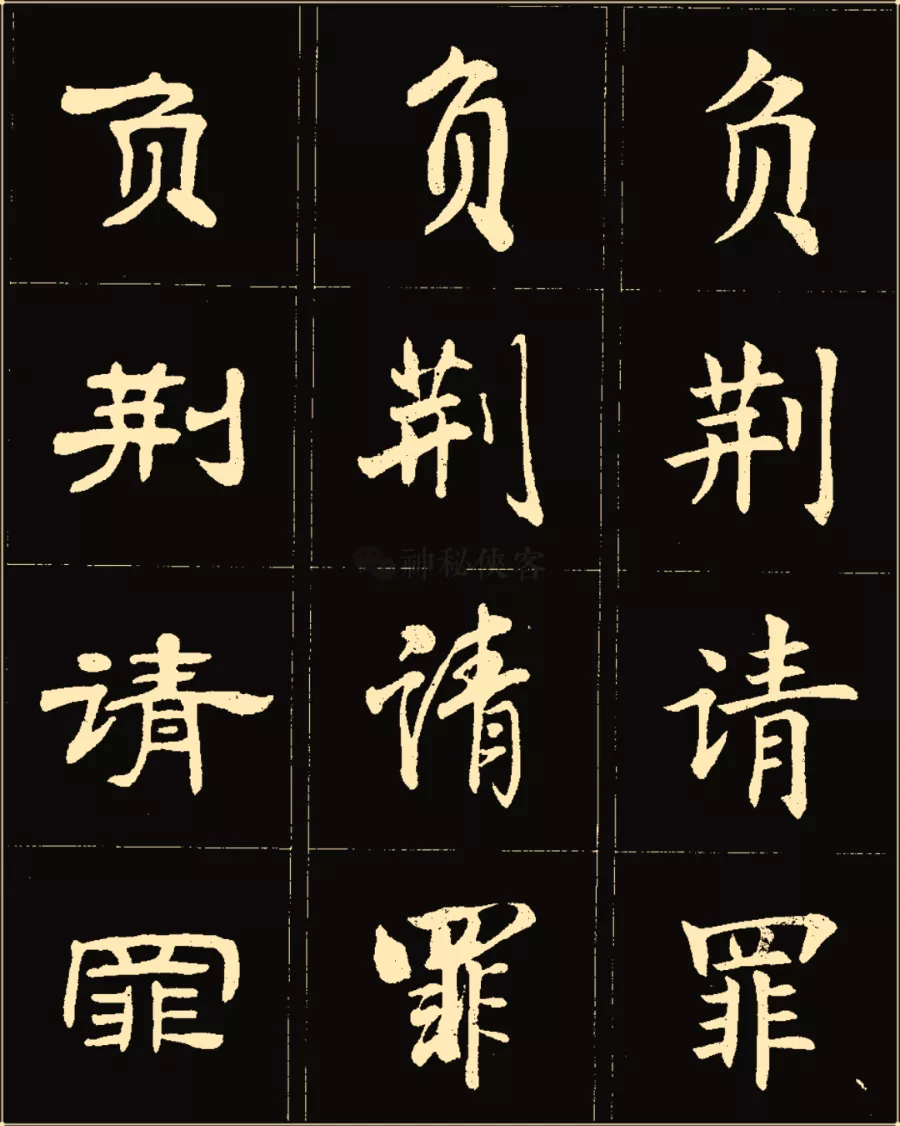 负 负 负
荆 荆 荆
神秘侠客
请 请 请
罪 罪 罪